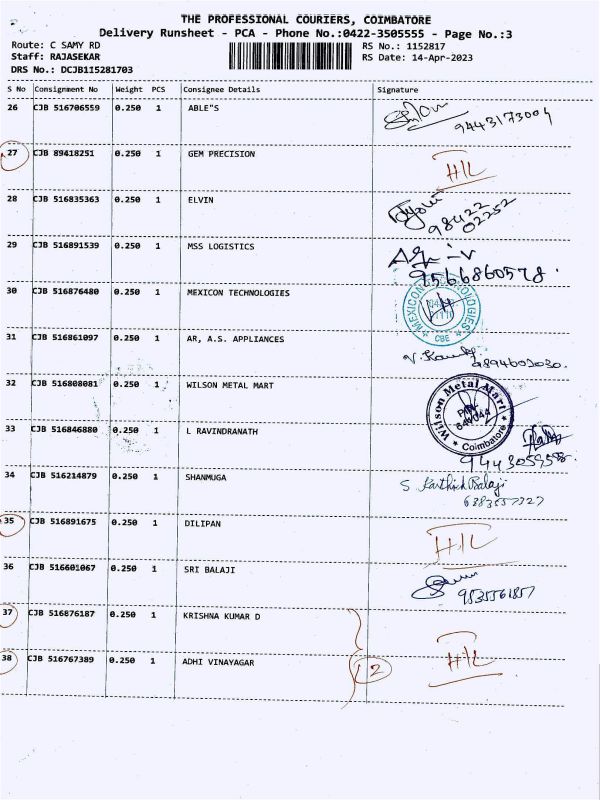 THE PROFESSIONAL COURIERS, COIMBATORE
Delivery Runsheet - PCA - Phone No.:0422-3505555 - Page No.:3
Route: C SAMY RD RS No.: 1152817
Staff: RAJASEKAR RS Date: 14-Apr-2023
DRS No.: DCJB115281703
S No Consignment No Weight PCS Consignee Details Signature
26 CJB 516706559 0.250 1 ABLE"S
9443173004
27 CJB 89418251 0.250 1 GEM PRECISION H/L
28 CJB 516835363 0.250 1 ELVIN
98422
02252
29 CJB 516891539 0.250 1 MSS LOGISTICS
9566860578.
30 CJB 516876480 0.250 1 MEXICON TECHNOLOGIES
MEXICON TECHNOLOGIES
CBE
31 CJB 516861097 0.250 1 AR, A.S. APPLIANCES
32 CJB 516808081 0.250 1 WILSON METAL MART
Wilson Metal Mart
Coimbatore
33 CJB 516846880 0.250 1 L RAVINDRANATH
34 CJB 516214879 0.250 1 SHANMUGA S Karthick Balaji
35 CJB 516891675 0.250 1 DILIPAN H/L
36 CJB 516601067 0.250 1 SRI BALAJI
9535561857
37 CJB 516876187 0.250 1 KRISHNA KUMAR D
38 CJB 516767389 0.250 1 ADHI VINAYAGAR 2 H/L